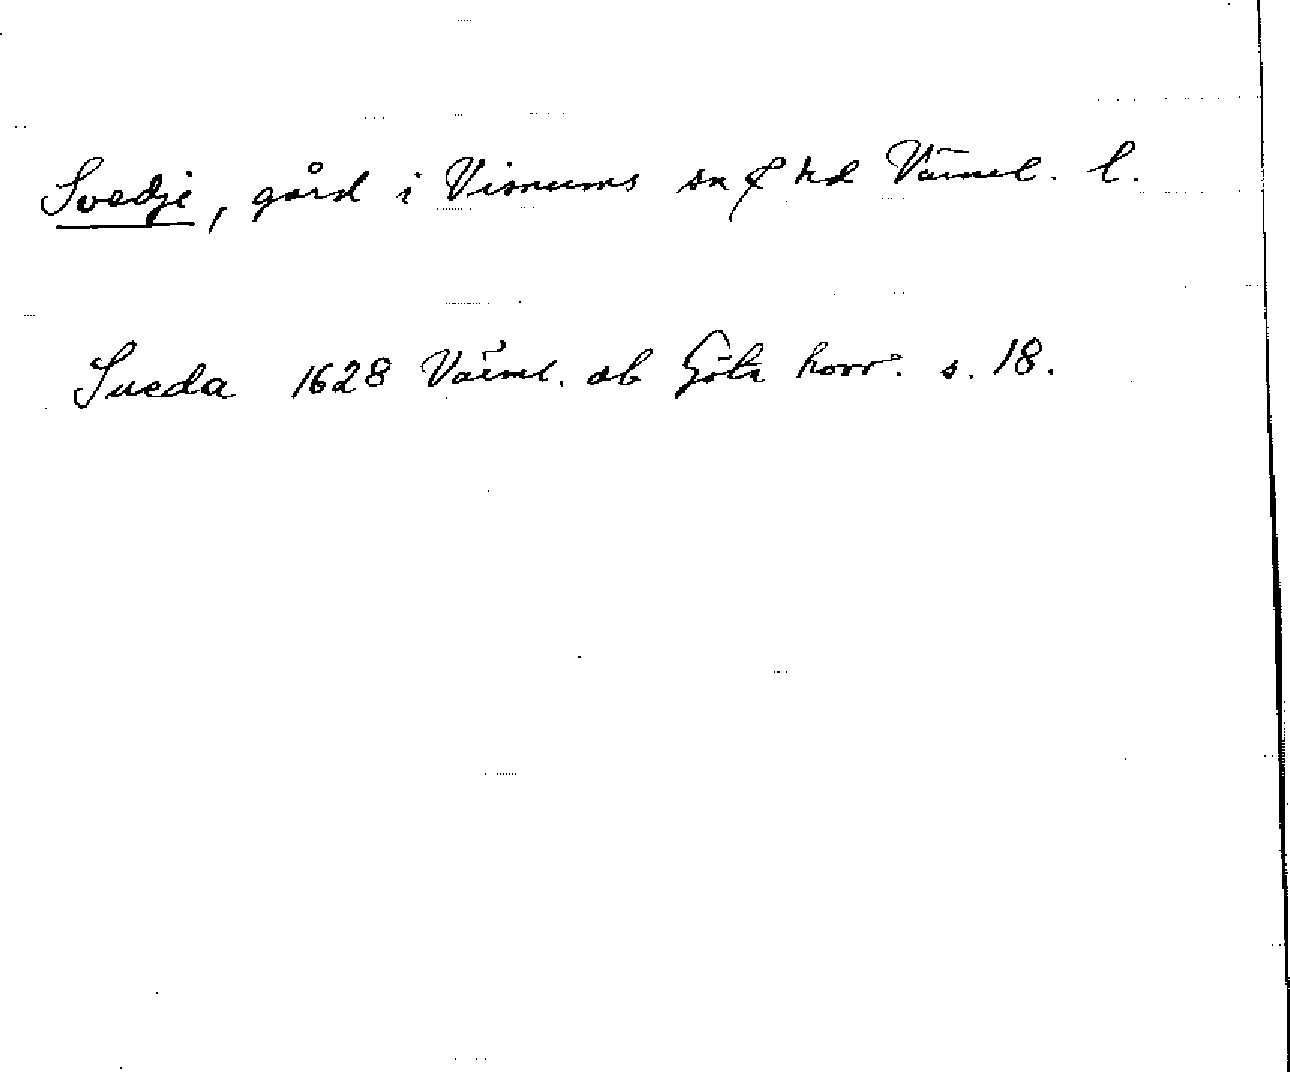 Svedje, gård i Visnums sn & hd Värml. l.
Sueda 1628 Värml. ab Göta hovr. s. 18.